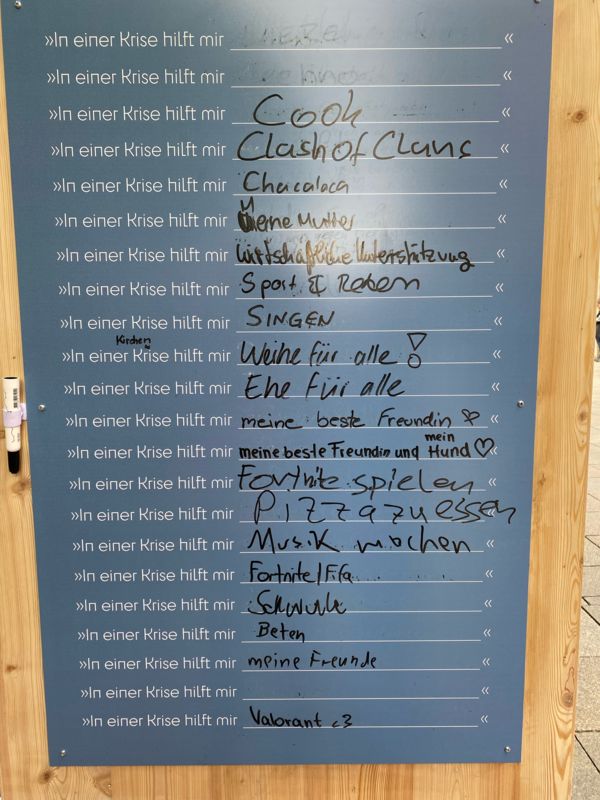 »In einer Krise hilft mir «
»In einer Krise hilft mir «
»In einer Krise hilft mir Cook «
»In einer Krise hilft mir Clash of Clans «
»In einer Krise hilft mir Chacalaca «
»In einer Krise hilft mir Meine Mutter «
»In einer Krise hilft mir wirtschaftliche Unterstützung «
»In einer Krise hilft mir Sport & Reden «
»In einer Krise hilft mir SINGEN «
Kirchen
»In einer Krise hilft mir Weihe für alle! «
»In einer Krise hilft mir Ehe für alle «
»In einer Krise hilft mir meine beste Freundin ♡ «
mein
»In einer Krise hilft mir meine beste Freundin und Hund ♡ «
»In einer Krise hilft mir Fortnite spielen «
»In einer Krise hilft mir Pizza zu essen «
»In einer Krise hilft mir Musik machen «
»In einer Krise hilft mir Fortnite/Fifa «
»In einer Krise hilft mir «
»In einer Krise hilft mir Beten «
»In einer Krise hilft mir meine Freunde «
»In einer Krise hilft mir «
»In einer Krise hilft mir Valorant <3 «